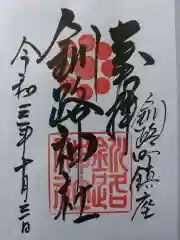 奉拝
釧路町鎮座
釧路神社
釧路
神社
令和三年十月三日